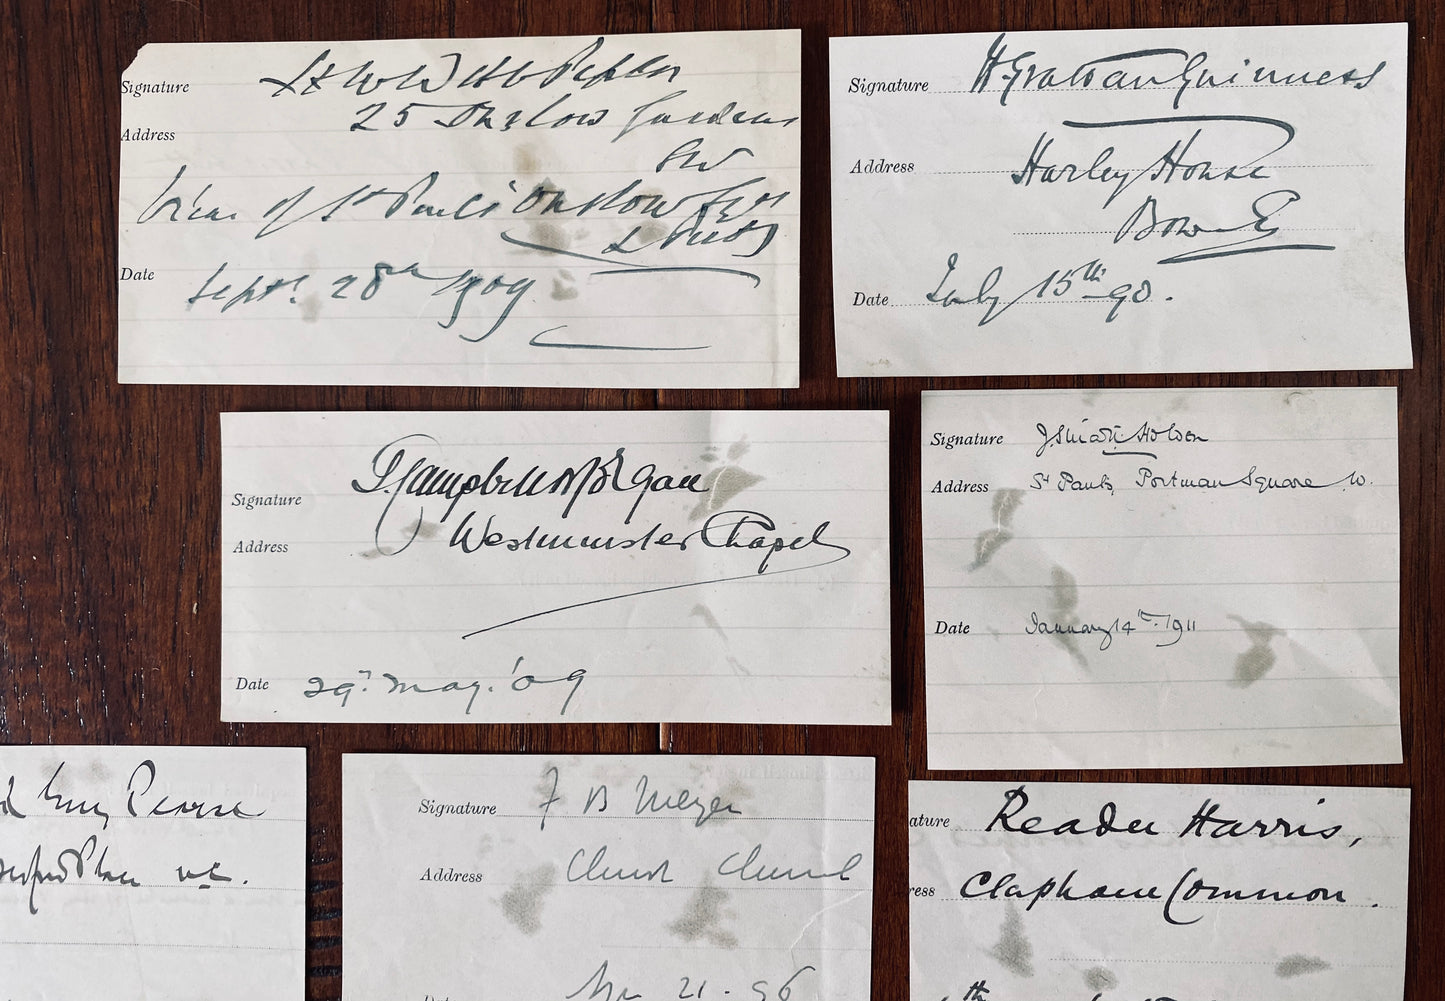 Signature H. W. Webb Peploe
Address 25 Onslow Gardens
SW
Vicar of St Paul's Onslow Sq
London
Date Septr. 28th 1909
Signature H. Grattan Guinness
Address Harley House
Bow E
Date July 15th 90.
Signature G. Campbell Morgan
Address Westminster Chapel
Date 29. May. '09
Signature J. Stuart Holden
Address St Pauls, Portman Square W.
Date January 14th 1911
Guy Pearse
Place W.C.
Signature F B Meyer
Address Christ Church
21 - 96
ature Reader Harris,
ress Clapham Common.
th